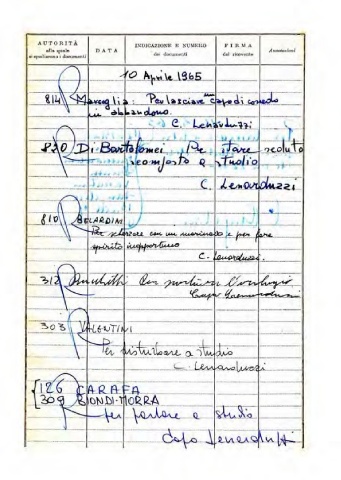 AUTORITÀ
alla quale
si spediscono i documenti
DATA
INDICAZIONE E NUMERO
dei documenti
FIRMA
del ricevente
Annotazioni
10 Aprile 1965
814 Maraglia: Per lasciare un capo di corredo
in abbandono
C. Lenarduzzi
820 Di Bartolomei Per stare seduto
scomposto a studio
C. Lenarduzzi
810 BELARDINI
Per scherzare con un marinaio e per fare
spirito inopportuno
C. Lenarduzzi.
312 Per
Capo Lenarduzzi
303 VALENTINI
Per disturbare a studio
C. Lenarduzzi
126 CARAFA
309 BIONDI-MORRA
per parlare a studio
Capo Lenarduzzi